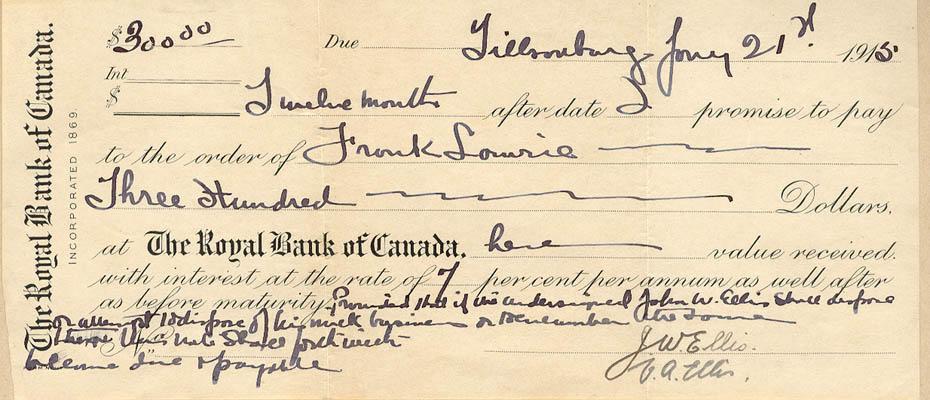 The Royal Bank of Canada.
INCORPORATED 1869.
$300 00
Due Tillsonburg Jany 21st 1915
Int
$ Twelve months after date I promise to pay
to the order of Frank Lowrie
Three Hundred Dollars.
at The Royal Bank of Canada, here value received.
with interest at the rate of 7 per cent per annum as well after
as before maturity. Provided that if the undersigned John W. Ellis Shall dispose
or attempt to dispose of his milk business or Encumber the Same
then this Note Shall forthwith
become due & payable
J. W. Ellis.
A. Ellis.